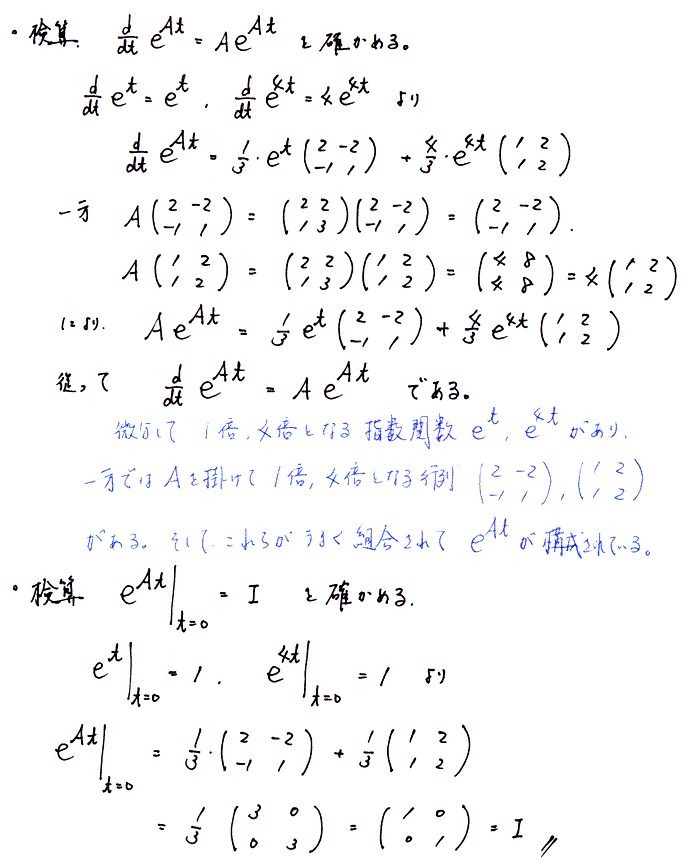 ・検算. d/dt e^{At} = A e^{At} を確かめる。
d/dt e^t = e^t , d/dt e^{4t} = 4e^{4t} より
d/dt e^{At} = 1/3 · e^t (2 -2; -1 1) + 4/3 · e^{4t} (1 2; 1 2)
一方 A (2 -2; -1 1) = (2 2; 1 3)(2 -2; -1 1) = (2 -2; -1 1).
A (1 2; 1 2) = (2 2; 1 3)(1 2; 1 2) = (4 8; 4 8) = 4 (1 2; 1 2)
により. A e^{At} = 1/3 e^t (2 -2; -1 1) + 4/3 e^{4t} (1 2; 1 2)
従って d/dt e^{At} = A e^{At} である。
微分して 1倍, 4倍となる 指数関数 e^t , e^{4t} があり,
一方では Aを掛けて 1倍, 4倍となる行列 (2 -2; -1 1), (1 2; 1 2)
がある。そして、これらが うまく 組合されて e^{At} が構成されている。
・検算 e^{At}|_{t=0} = I を確かめる.
e^t|_{t=0} = 1 , e^{4t}|_{t=0} = 1 より
e^{At}|_{t=0} = 1/3 · (2 -2; -1 1) + 1/3 (1 2; 1 2)
= 1/3 (3 0; 0 3) = (1 0; 0 1) = I //